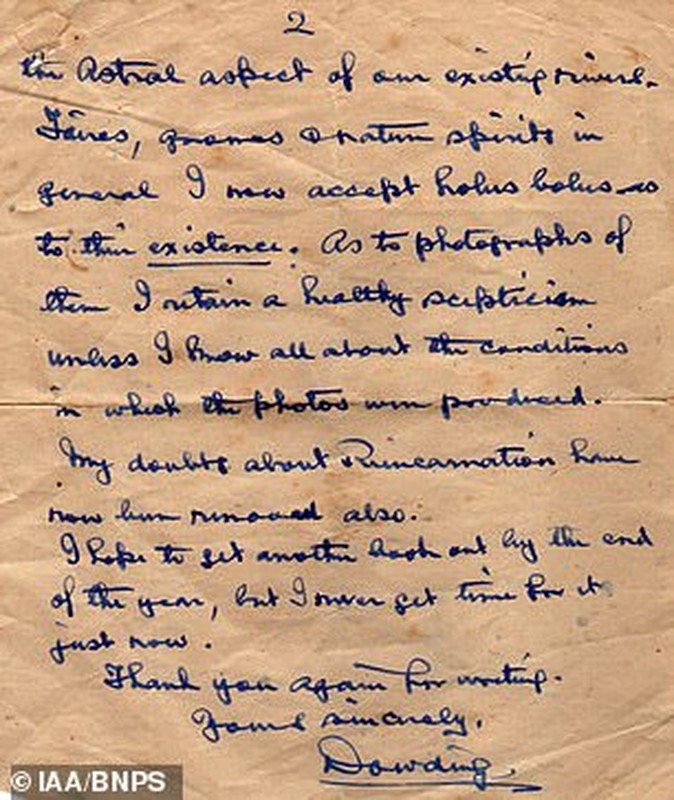 2
the Astral aspect of our existing rivers.
Fairies, gnomes & nature spirits in
general I now accept holus bolus as
to their existence. As to photographs of
them I retain a healthy scepticism
unless I know all about the conditions
in which the photos were produced.
My doubts about Reincarnation have
now been removed also.
I hope to get another book out by the end
of the year, but I never get time for it
just now.
Thank you again for writing.
Yours sincerely.
Dowding.
© IAA/BNPS